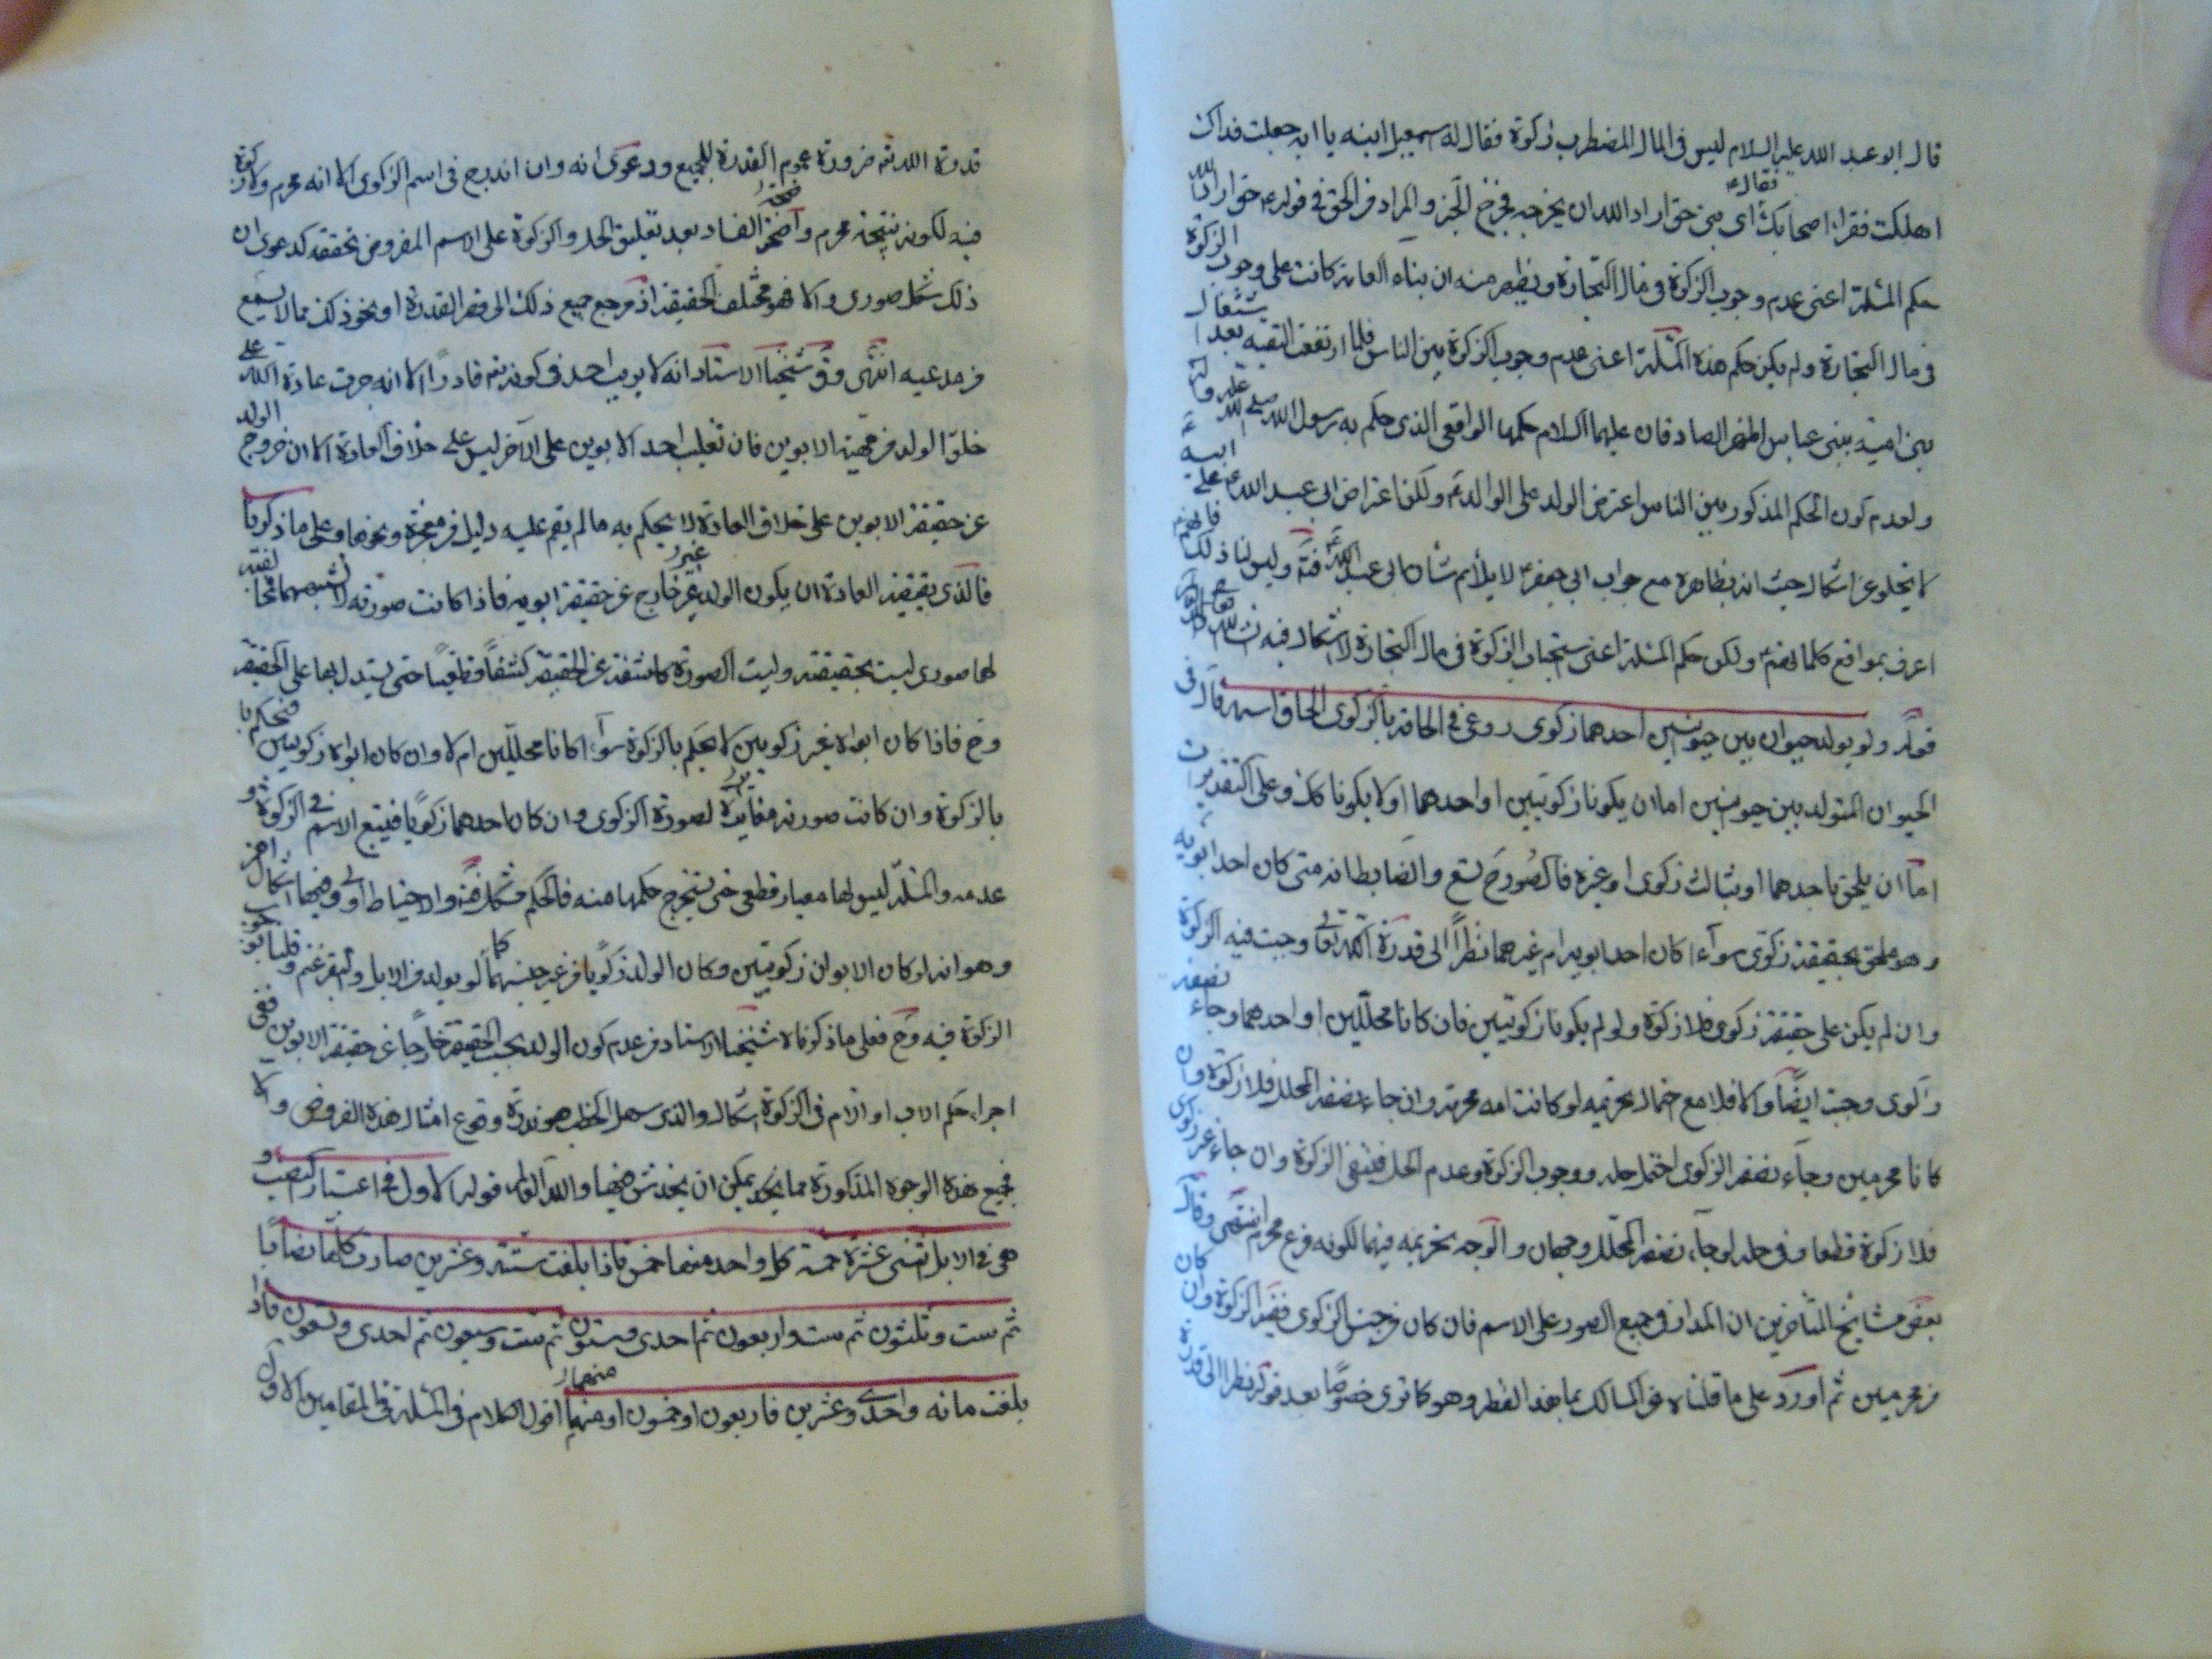 قال ابو عبد الله عليه السلام ليس فى المال المضطرب زكوة فقال له اسمعيل ابنه يا ابه جعلت فداك
اهلكت فقراء اصحابك فقال اى بنى حق اراد الله ان يخرجه فخرج الخبر و المراد من الحق فى قوله حق اراد الله
حكم المسئلة اعنى عدم وجوب الزكوة فى مال التجارة و يظهر منه ان بناء العامة كانت على وجوب الزكوة
فى مال التجارة ولم يكن حكم هذه المسئلة اعنى عدم وجوب الزكوة بين الناس فلما ارتفعت التقية بعد اشتغال
بنى امية ببنى عباس اظهر الصادقان عليهما السلام حكمها الواقعى الذى حكم به رسول الله صلى الله عليه و اله
ولعدم كون الحكم المذكور بين الناس اعترض الولد على الوالد و لكن اعتراض ابى عبد الله على ابيه
لا يخلو عن اشكال حيث انه بظاهره مع جواب ابى جعفر لا يلائم شأن ابى عبد الله وليس لنا ذلك فانهم
اعرف بمواقع كلماتهم ولكن حكم المسئلة اعنى استحباب الزكوة فى مال التجارة لا اشكال فيه
قوله ولو تولد حيوان بين حيوانين احدهما زكوى روعى فى الحاقه بالزكوى الحاق اسمه قال فى
الحيوان المتولد بين حيوانين اما ان يكونا زكويين او احدهما او لا يكونا كك وعلى التقديرات
اما ان يلحق باحدهما او بثالث زكوى او غيره فالصور ح تسع والضابط انه متى كان احد ابويه
وهو ملحق بحقيقة زكوى سواء كان احد ابويه ام غيرهما نظرا الى قدرة الله تعالى وجبت فيه الزكوة
وان لم يكن على حقيقة زكوى فلا زكوة ولو لم يكونا زكويين فان كانا محللين او احدهما وجاء بصفة
زكوى وجبت ايضا والا فلا مع احتمال تحريمه لو كانت امه محرمة وان جاء بصفة المحلل فلا زكوة وان
كانا محرمين وجاء بصفة الزكوى احتمل حله ووجوب الزكوة وعدم الحل فينتفى الزكوة وان جاء غير زكوى
فلا زكوة قطعا وفى حله لو جاء بصفة المحلل وجهان والوجه تحريمه فيهما لكونه فرع محرم انتهى وقال
بعض مشايخ المتاخرين ان المدار فى جميع الصور على الاسم فان كان من جنس الزكوى ففيه الزكوة وان كان
من محرمين ثم اورد على ما قلناه عن المسالك بما هذا لفظه وهو كما ترى خصوصا بعد قوله نظرا الى قدرة
قدرة الله تم ضرورة عموم القدرة للجميع ودعوى انه وان اندرج فى اسم الزكوى الا انه محرم ولا زكوة
فيه لكونه نتيجة محرم واضحة الفساد بعد تعليق الحل والزكوة على الاسم المفروض تحققه كدعوى ان
ذلك شكل صورى والا فهو مختلف الحقيقة اذ مرجع جميع ذلك الى قصر القدرة او نحو ذلك مما لا يسمع
من مدعيه انتهى وق شيخنا الاستاد انه لا يريب احد فى كونه تم قادرا الا انه جرت عادة الله على
خلق الولد من جهة الابوين فان تغليب احد الابوين على الآخر ليس على خلاف العادة الا ان خروج الولد
عن حقيقة الابوين على خلاف العادة لا يحكم به ما لم يقم عليه دليل من معجزة ونحوها وعلى ما ذكرنا
فالذى يقتضيه العادة ان يكون الولد غير خارج عن حقيقة ابويه فاذا كانت صورته لا تشبههما
لها صورى ليست بحقيقته وليست الصورة كاشفة عن الحقيقة كشفا قطعيا حتى يستدل بها على الحقيقة
وح فاذا كان ابواه غير زكويين لا يحكم بالزكوة سواء كانا محللين ام لا وان كان ابواه زكويين فنحكم
بالزكوة وان كانت صورته مغايرة لصورة الزكوى وان كان احدهما زكويا فيتبع الاسم فى الزكوة و
عدمه والمسئلة ليس لها معيار قطعى حتى يستخرج حكمها منه فالحكم مشكل والاحتياط اولى وفيها اشكال اخر
وهو انه لو كان الابوان زكويين وكان الولد زكويا من غير جنسهما كما لو تولد من الابل والبقر غنم وقلنا بوجوب
الزكوة فيه وح فعلى ما ذكرناه شيخنا الاستاد من عدم كون الولد بحسب الحقيقة خارجا عن حقيقة الابوين ففى
اجراء حكم الاب او الام فى الزكوة اشكال والذى يسهل الخطب هو ندرة وقوع امثال هذه الفروض والا
فجميع هذه الوجوه المذكورة مما يمكن ان يخدش فيها والله العالم قوله الاول فى اعتبار النصب و
هى فى الابل اثنى عشرة خمسة كل واحد منها خمس فاذا بلغت ستة وعشرين صارت كلها نصابا
ثم ست وثلثون ثم ست واربعون ثم احدى وستون ثم ست وسبعون ثم احدى وتسعون فاذا
بلغت مائه واحدى وعشرين فاربعون او خمسون او منهما اقول الكلام فى المسئلة فى المقامين الاول